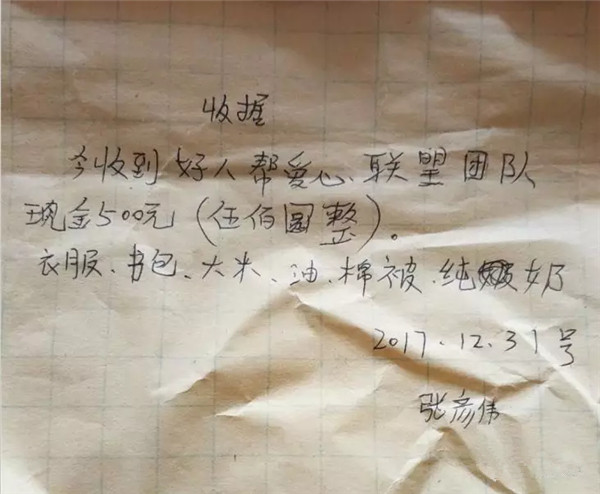 收据
今收到好人帮爱心联盟团队
现金500元(伍佰圆整)。
衣服、书包、大米、油、棉被、纯奶
2017.12.31号
张彦伟